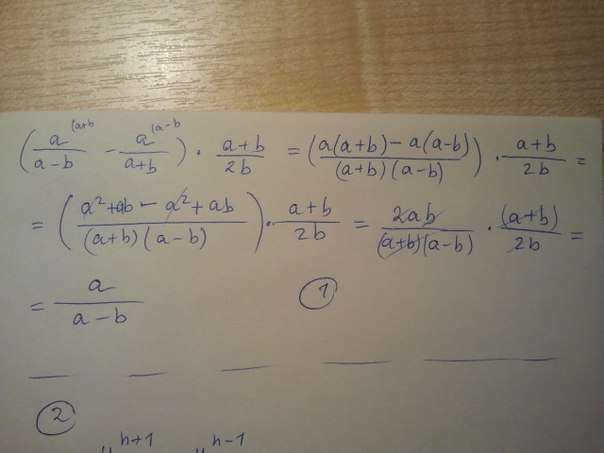 (a^(a+b / (a-b) - a^(a-b / (a+b)) · (a+b)/(2b) = ((a(a+b) - a(a-b)) / ((a+b)(a-b))) · (a+b)/(2b) =
= ((a²+ab - a²+ab) / ((a+b)(a-b))) · (a+b)/(2b) = 2ab/((a+b)(a-b)) · (a+b)/(2b) =
= a/(a-b) ①
②
n+1 n-1